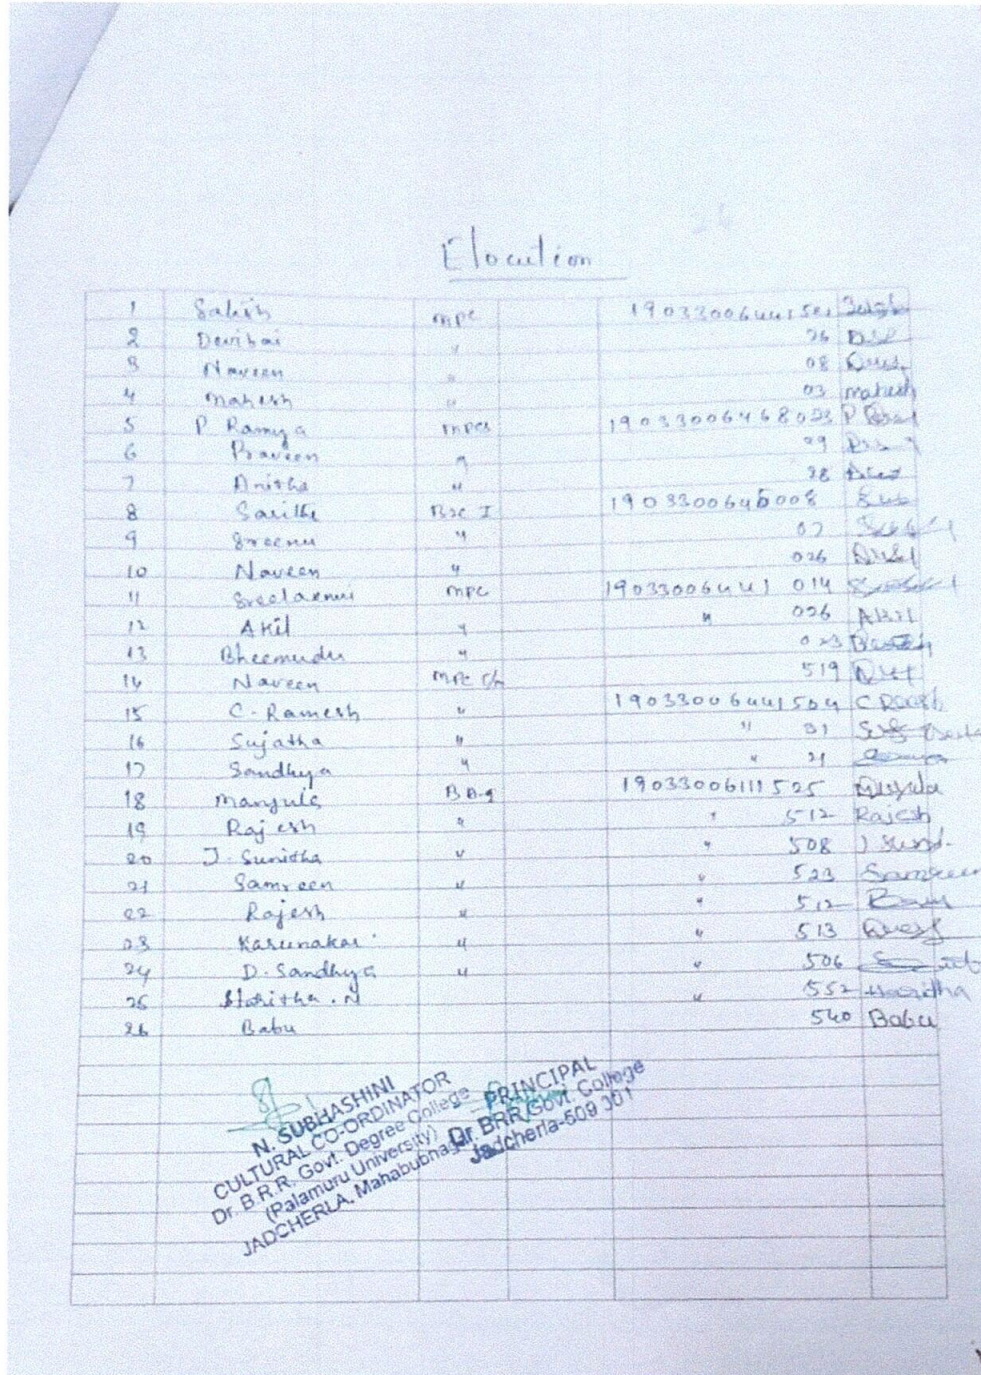 Elocution
1 Satish mpc
2 Devi bai " 26
3 Naveen " 08
4 Mahesh " 03 mahesh
5 P Ramya mpcs 190330064 68023 P
6 Praveen " 09
7 Anitha " 28
8 Saritha Bzc I
9 Sreenu " 07
10 Naveen " 026
11 Sreelaxmi mpc 19033006441 014
12 Akil " " 026 Akil
13 Bheemudu " 023
14 Naveen mpc 519
15 C. Ramesh " 19033006441504
16 Sujatha " " 31
17 Sandhya " " 21
18 Manjula 19033006111525
19 Rajesh " " 512 Rajesh
20 J. Sunitha " " 508
21 Samreen " " 523 Samreen
22 Rajesh " " 512
23 Karunakar " " 513
24 D. Sandhya " " 506
25 Haritha . N " 552 Haritha
26 Babu 540 Babu
N. SUBHASHINI
CULTURAL CO-ORDINATOR
Dr. B.R.R. Govt. Degree College
(Palamuru University)
JADCHERLA, Mahabubnagar
PRINCIPAL
Dr. BRR Govt. College
Jadcherla-509 301